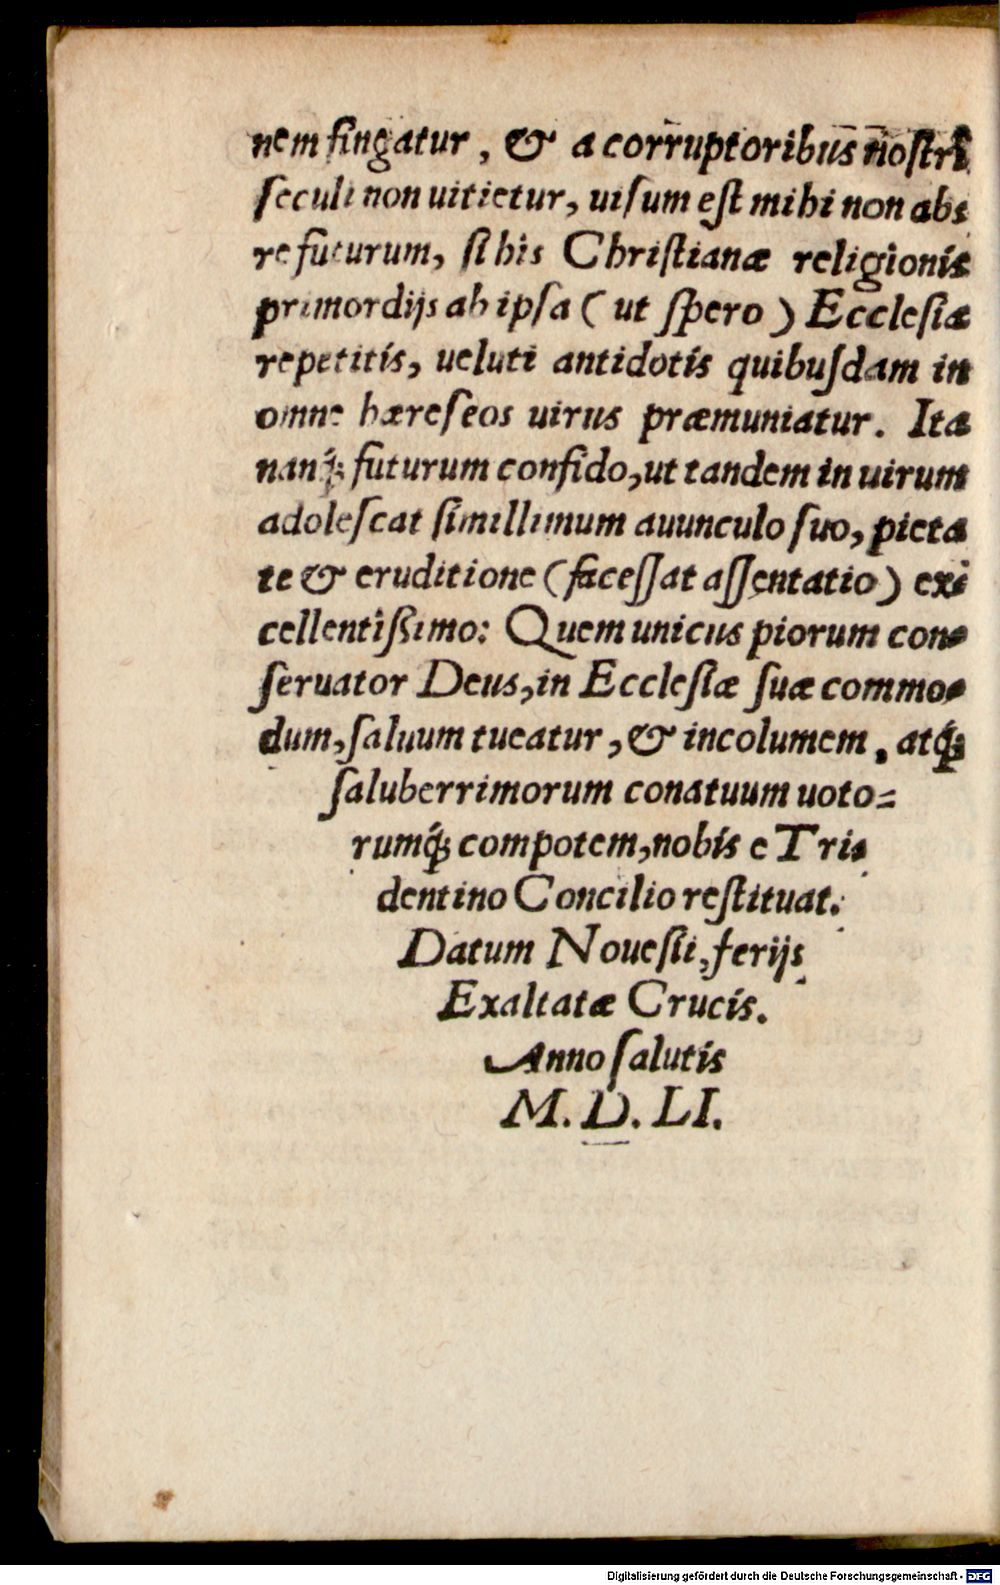 nem fingatur, & a corruptoribus nostri
seculi non uitietur, uisum est mihi non abs
re futurum, si his Christianæ religionis
primordijs ab ipsa (ut spero) Ecclesia
repetitis, ueluti antidotis quibusdam in
omne hæreseos uirus præmuniatur. Ita
nanq́; futurum confido, ut tandem in uirum
adolescat simillimum auunculo suo, pieta
te & eruditione (facessat assentatio) ex-
cellentißimo: Quem unicus piorum con-
seruator Deus, in Ecclesiæ suæ commo-
dum, saluum tueatur, & incolumem, atq́;
saluberrimorum conatuum uoto=
rumq́; compotem, nobis e Tri-
dentino Concilio restituat.
Datum Nouesii, ferijs
Exaltatæ Crucis.
Anno salutis
M. D. LI.
Digitalisierung gefördert durch die Deutsche Forschungsgemeinschaft - DFG